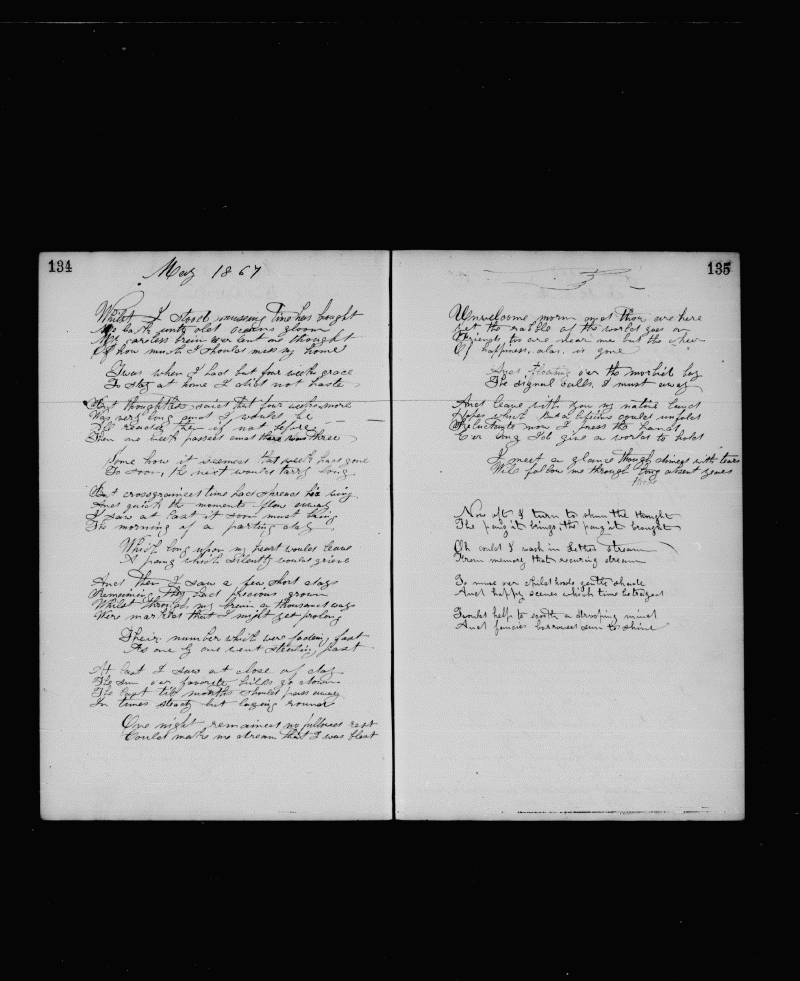 134
May 1867
Whilst I stood musing Time has brought
Me back unto old gloom
My careless brain over lent no thought
Of how much I should miss my home
Twas when I had but four weeks grace
To stay at home I did not haste
But thought this said that four weeks more
Was very long and I would be
not before
Then one week passed and there was three
Some how it seemed that week had gone
To soon, the next would tarry long
But crossgrained time had spread his wing
And quick the moments flow away
I saw at last it soon must bring
The morning of a parting day
Which long upon my heart would leave
A pang which silently would grieve
And then I saw a few short days
Remaining they had precious grown
Whilst through my brain a thousand ways
Were marked that I might yet prolong
Their number which were fading fast
As one by one went stealing past
At last I saw at close of day
The sun our favorite hills go down
The last till months should pass away
In times steady but lagging round
One night remained my pillowed rest
Could make me dream that I was blest
135
Unwelcome morn and thou are here
Yet the rabble of the world goes on
Friends too are near me but the cheer
Of happiness, alas, is gone
And floating over the morbid lay
The signal calls, I must away
And leave with you my native land
Hopes which but a lifetime could unfold
Reluctantly now I press the hand
Ere long I'd give a world to hold
I meet a glance though dimed with tears
Will follow me through long absent years
Now oft I turn to shun the thought
The pang it brings, the pang it brought
Oh could I wash in Lethes stream
From memory that recuring dream
To muse over childhoods gentle shade
And happy scenes which time betrayed
Twould help to sooth a drooping mind
And fancies borrowed sun to shine